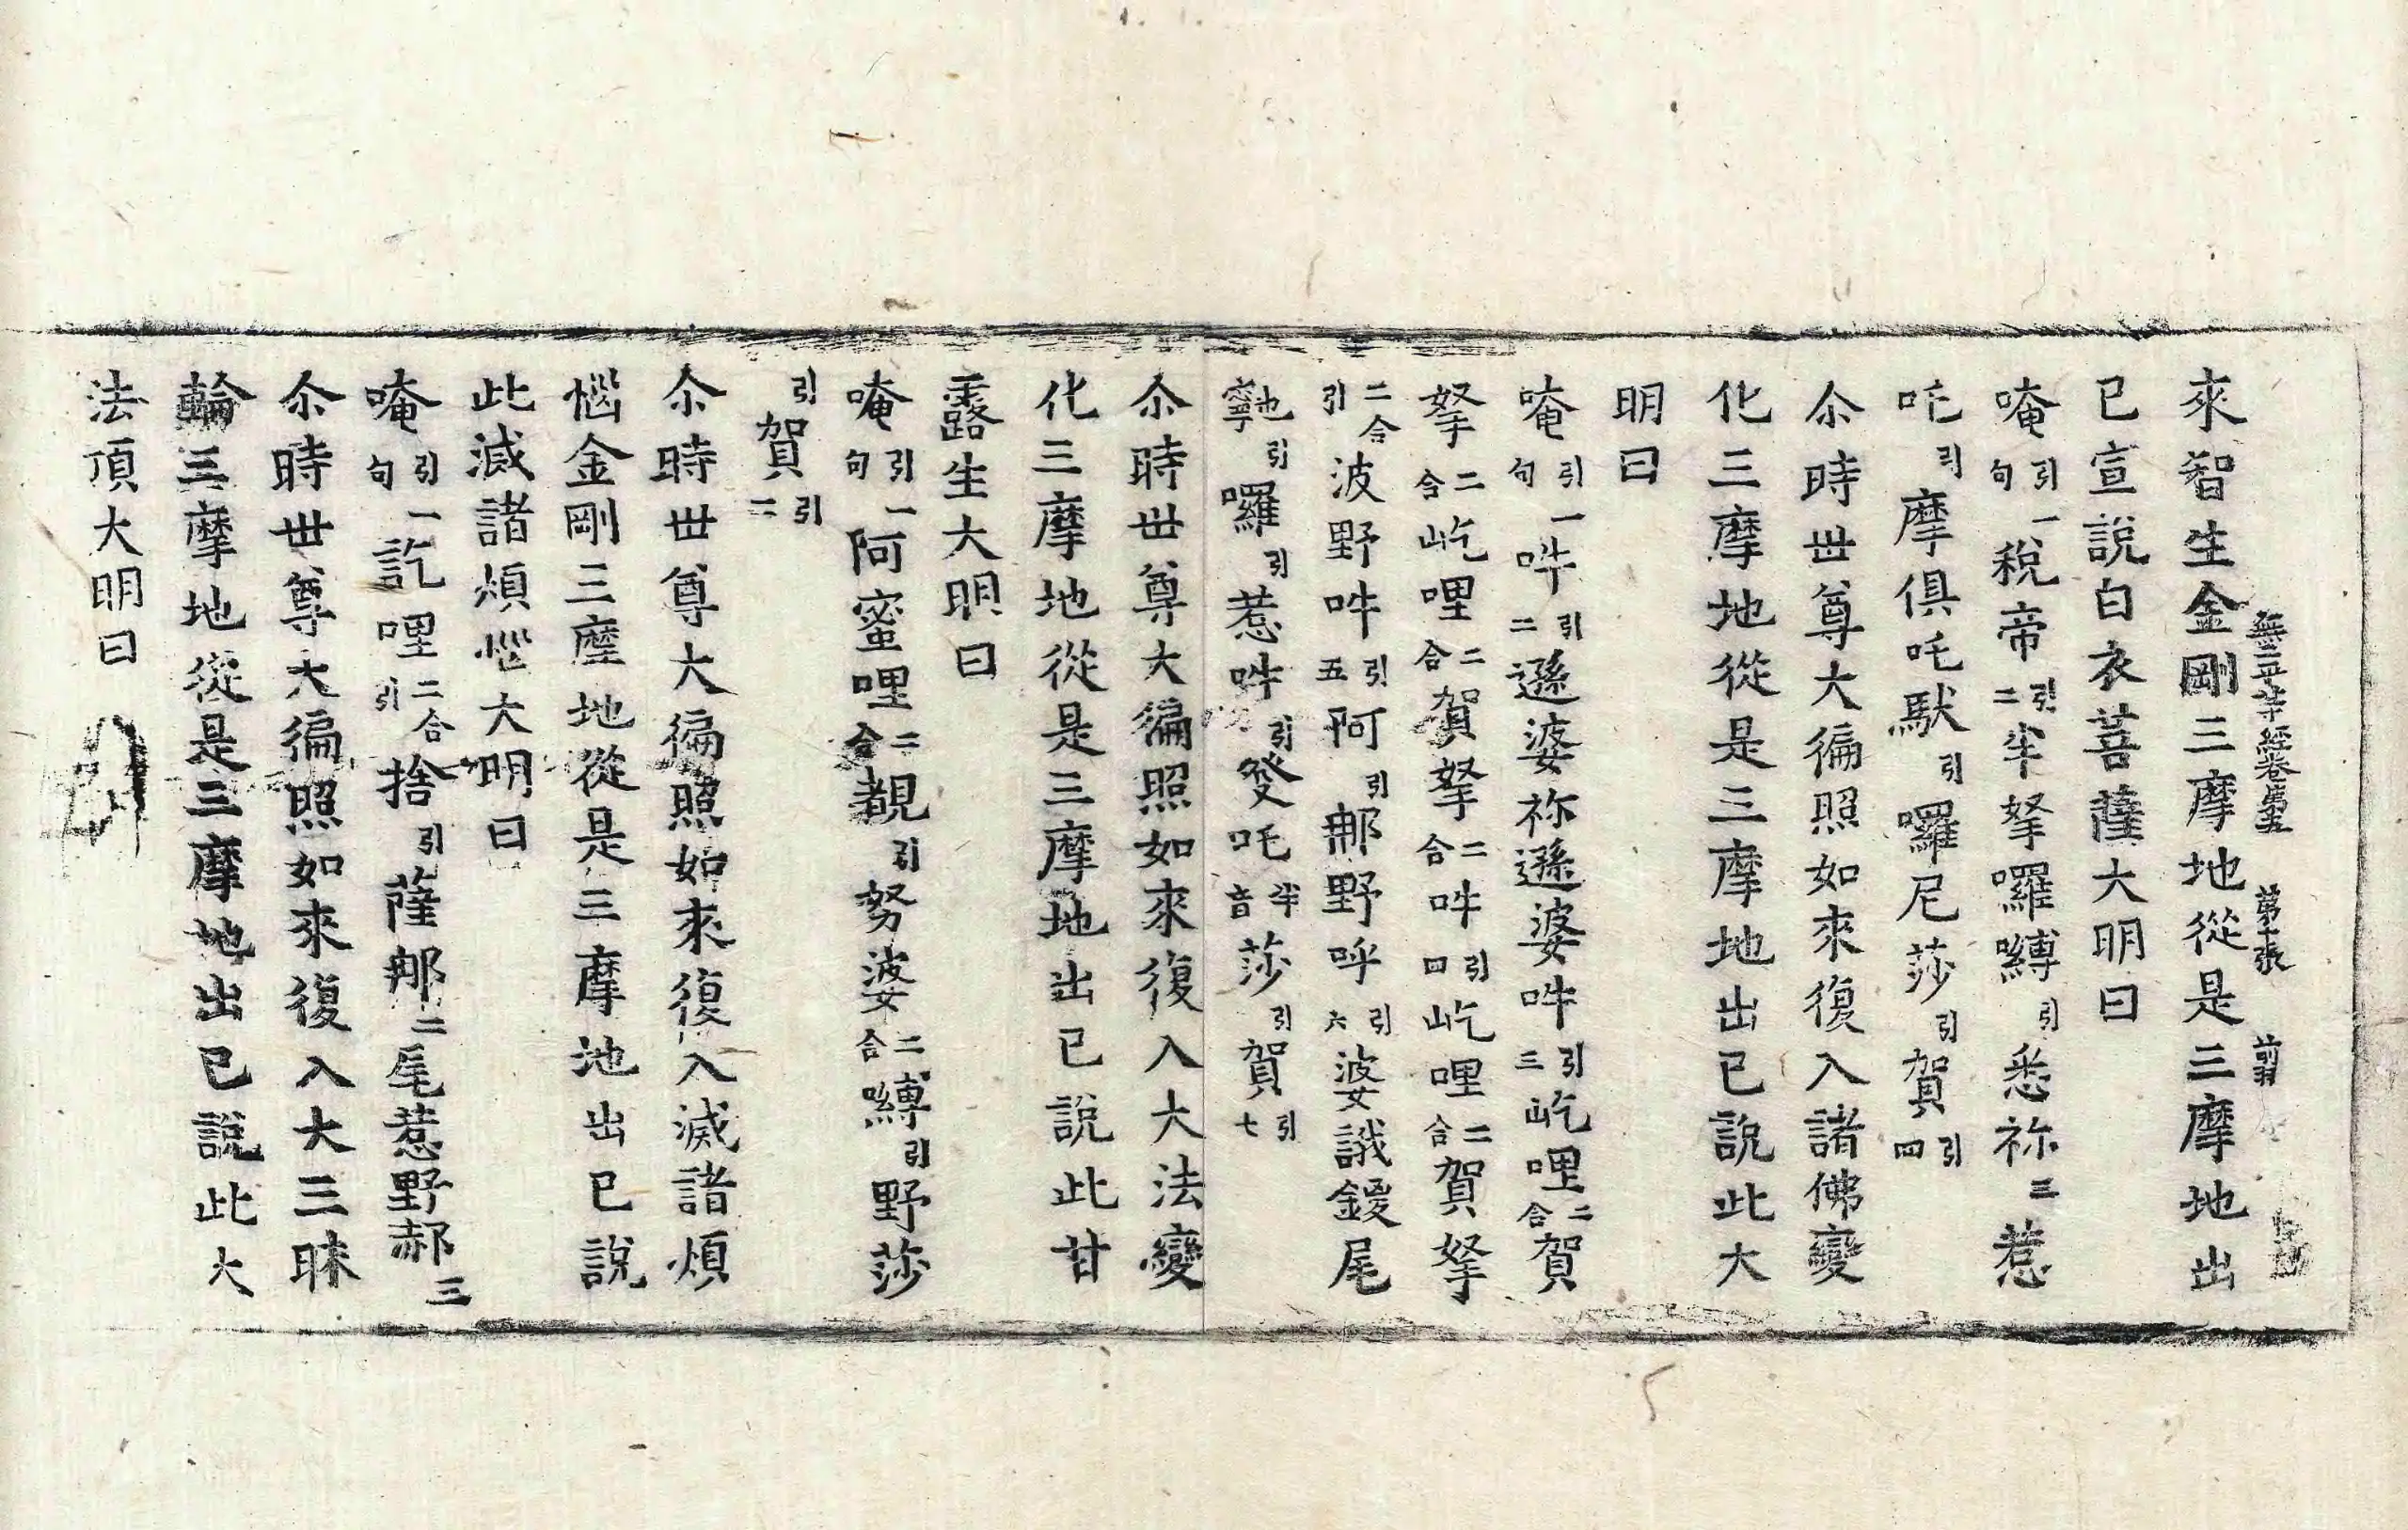 無二平等經卷第五 第十張 前羽
來智生金剛三摩地從是三摩地出
已宣說白衣菩薩大明曰
唵引一句稅帝引二半拏囉嚩引悉祢三惹
吒引摩俱吒馱引囉尼莎引賀引四
尒時世尊大徧照如來復入諸佛變
化三摩地從是三摩地出已說此大
明曰
唵引一句吽引二遜婆祢遜婆吽引三屹哩二合賀
拏二合屹哩二合賀拏二合吽引四屹哩二合賀拏
二合引波野吽引五阿引那野呼引六婆誐鑁尾
寧也引囉引惹吽引發吒半音莎引賀引七
尒時世尊大徧照如來復入大法變
化三摩地從是三摩地出已說此甘
露生大明曰
唵引一句阿蜜哩二合覩引努婆二合嚩引野莎
引賀引二
尒時世尊大徧照如來復入滅諸煩
惱金剛三摩地從是三摩地出已說
此滅諸煩惱大明曰
唵引一句訖哩二合引捨引薩那二尾惹野郝三
尒時世尊大徧照如來復入大三昧
輪三摩地從是三摩地出已說此大
法頂大明曰